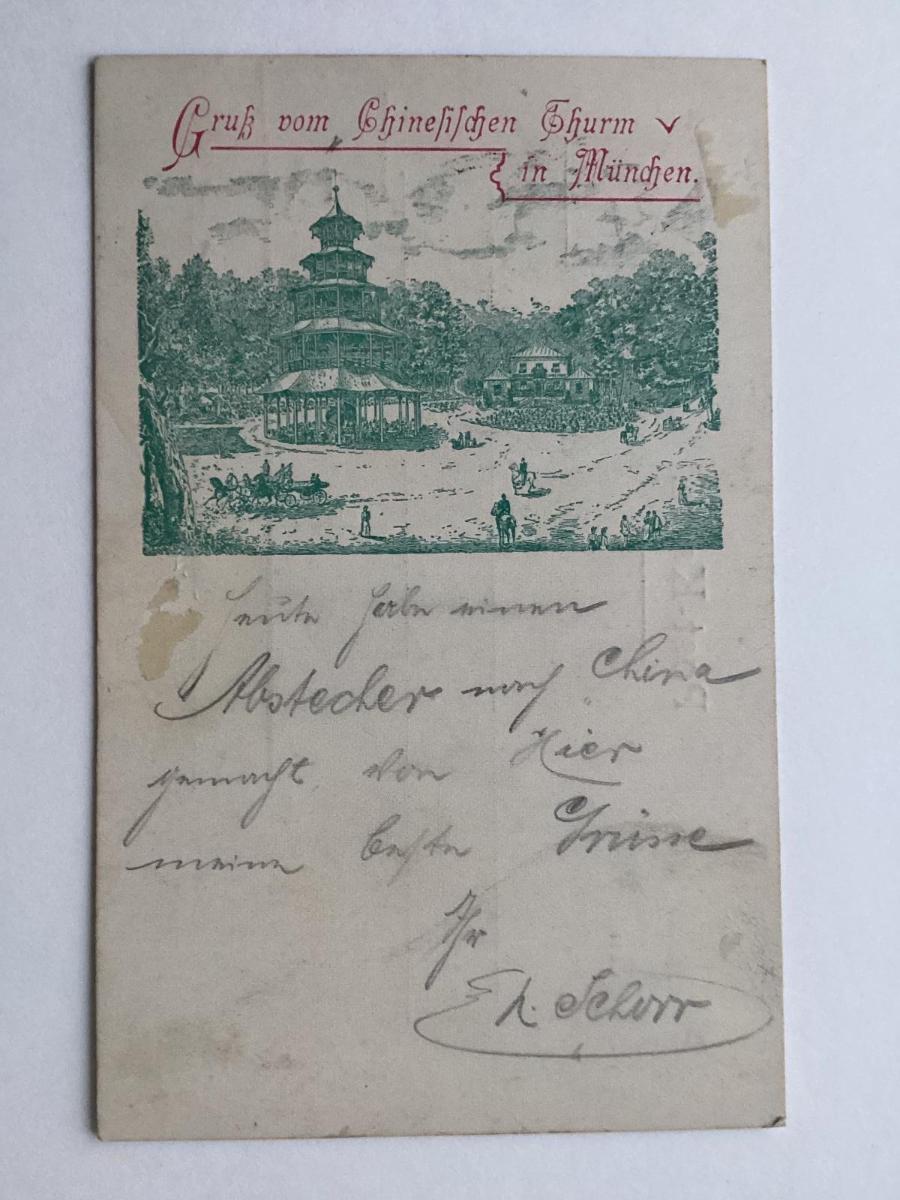 Gruß vom Chinesischen Thurm
in München.
Heute habe einen
Abstecher nach China
gemacht, von Hier
meine beste Grüsse
Ihr
Schorr